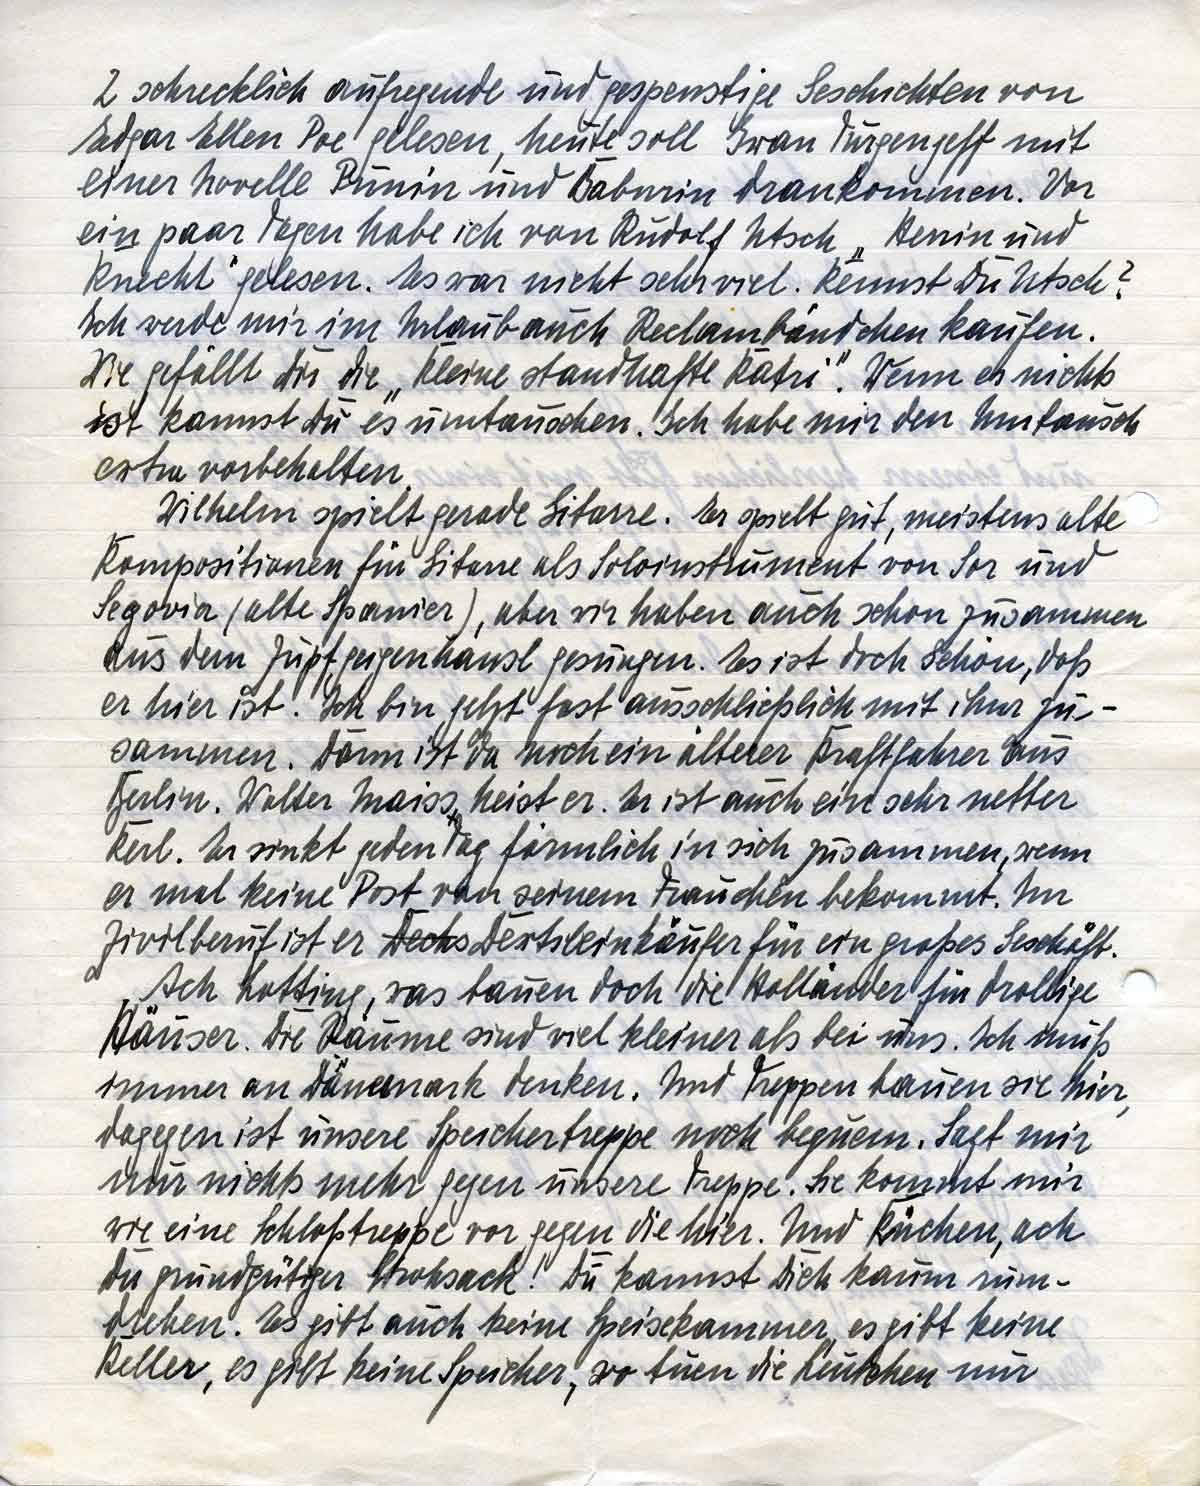 2 schrecklich aufregende und gespenstige Geschichten von
Edgar Ellen Poe gelesen, heute soll Iwan Turgenjeff mit
einer Novelle Punin und Baburin drankommen. Vor
ein paar Tagen habe ich von Rudolf Utsch „Herrin und
Knecht" gelesen. Es war nicht sehr viel. Kennst Du Utsch?
Ich werde mir im Urlaub auch Reclambändchen kaufen.
Wie gefällt Dir die „Kleine standhafte Katri". Wenn es nichts
ist kannst Du es umtauschen. Ich habe mir den Umtausch
extra vorbehalten.
Wilhelm spielt gerade Gitarre. Er spielt gut, meistens alte
Kompositionen für Gitarre als Soloinstrument von Sor und
Segovia (alte Spanier), aber wir haben auch schon zusammen
aus dem Zupfgeigenhansl gesungen. Es ist doch schön, daß
er hier ist. Ich bin jetzt fast ausschließlich mit ihm zu-
sammen. Dann ist da noch ein älterer Kraftfahrer aus
Berlin. Walter Maiss, heist er. Er ist auch ein sehr netter
Kerl. Er sinkt jeden Tag förmlich in sich zusammen, wenn
er mal keine Post von seinem Frauchen bekommt. Im
Zivilberuf ist er Techs Textileinkäufer für ein großes Geschäft.
Ach Lotting, was bauen doch die Holländer für drollige
Häuser. Die Räume sind viel kleiner als bei uns. Ich muß
immer an Dänemark denken. Und Treppen bauen sie hier,
dagegen ist unsere Speichertreppe noch bequem. Sagt mir
nur nichts mehr gegen unsere Treppe. Sie kommt mir
wie eine Schloßtreppe vor gegen die hier. Und Küchen, ach
Du grundgütiger Strohsack! Du kannst Dich kaum rum-
drehen. Es gibt auch keine Speisekammer, es gibt keine
Keller, es gibt keine Speicher, wo tuen die Leutchen nur